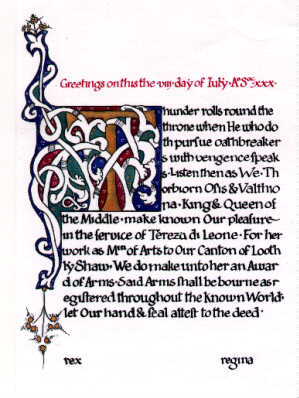 Greetings on this the viij day of July A S xxx
Thunder rolls round the
throne when He who do
th purſue oathbreaker
s with vengence ſpeak
s · Liſten then as We · Th
orborn Oſis & Valtho
na · King & Queen of
the Middle · make known Our pleaſure
in the ſervice of Tereza di Leone · For her
work as M of Arts to Our Canton of Looth
ly Shaw · We do make unto her an Awar
d of Arms · Said Arms ſhall be bourne as r
egiſtered throughout the Known World ·
let Our hand & ſeal atteſt to the deed ·
rex regina